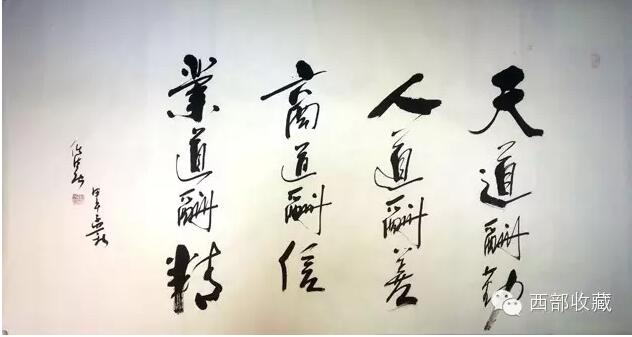 天道酬勤
人道酬善
商道酬信
業道酬精
西部收藏